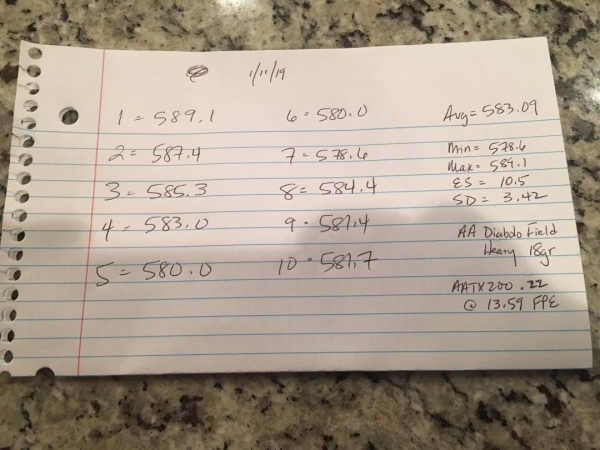 1/11/19
1 = 589.1
2 = 587.4
3 = 585.3
4 = 583.0
5 = 580.0
6 = 580.0
7 = 578.6
8 = 584.4
9 = 581.4
10 = 581.7
Avg = 583.09
Min = 578.6
Max = 589.1
ES = 10.5
SD = 3.42
AA Diabolo Field
Heavy 18gr
AATX200 .22
@ 13.59 FPE